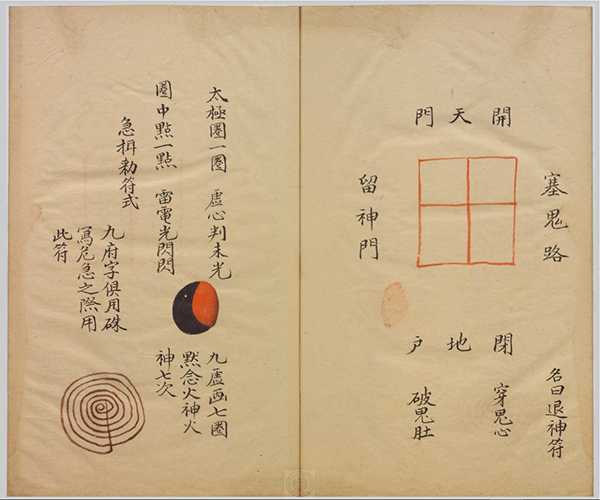 開天門
塞鬼路
留神門
閉地户
穿鬼心
破鬼肚
名曰退神符
太極圈一圈 虛心判未光
圈中點一點 雷電光閃閃
急揖勑符式
九府字俱用硃
寫危急之際用
此符
九虛画七圈
黙念火神火
神七次